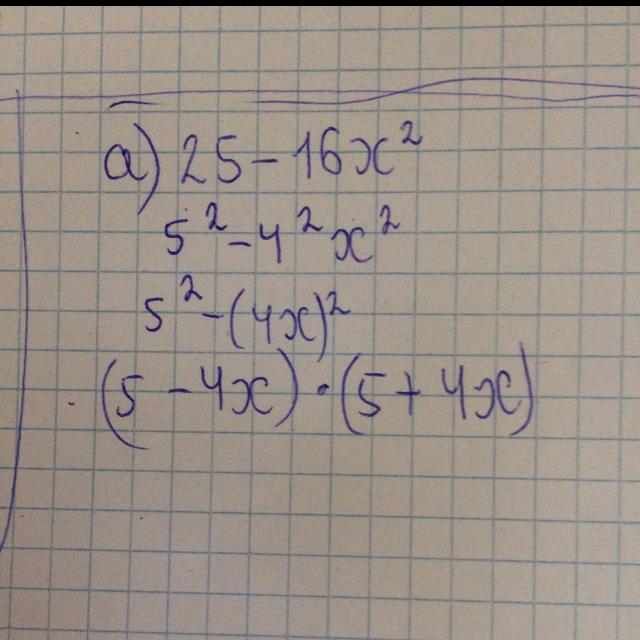 а) 25 - 16x²
5² - 4²x²
5² - (4x)²
(5 - 4x) · (5 + 4x)